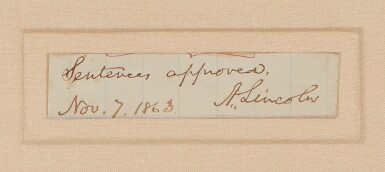 Sentences approved.
Nov. 7, 1863. A. Lincoln